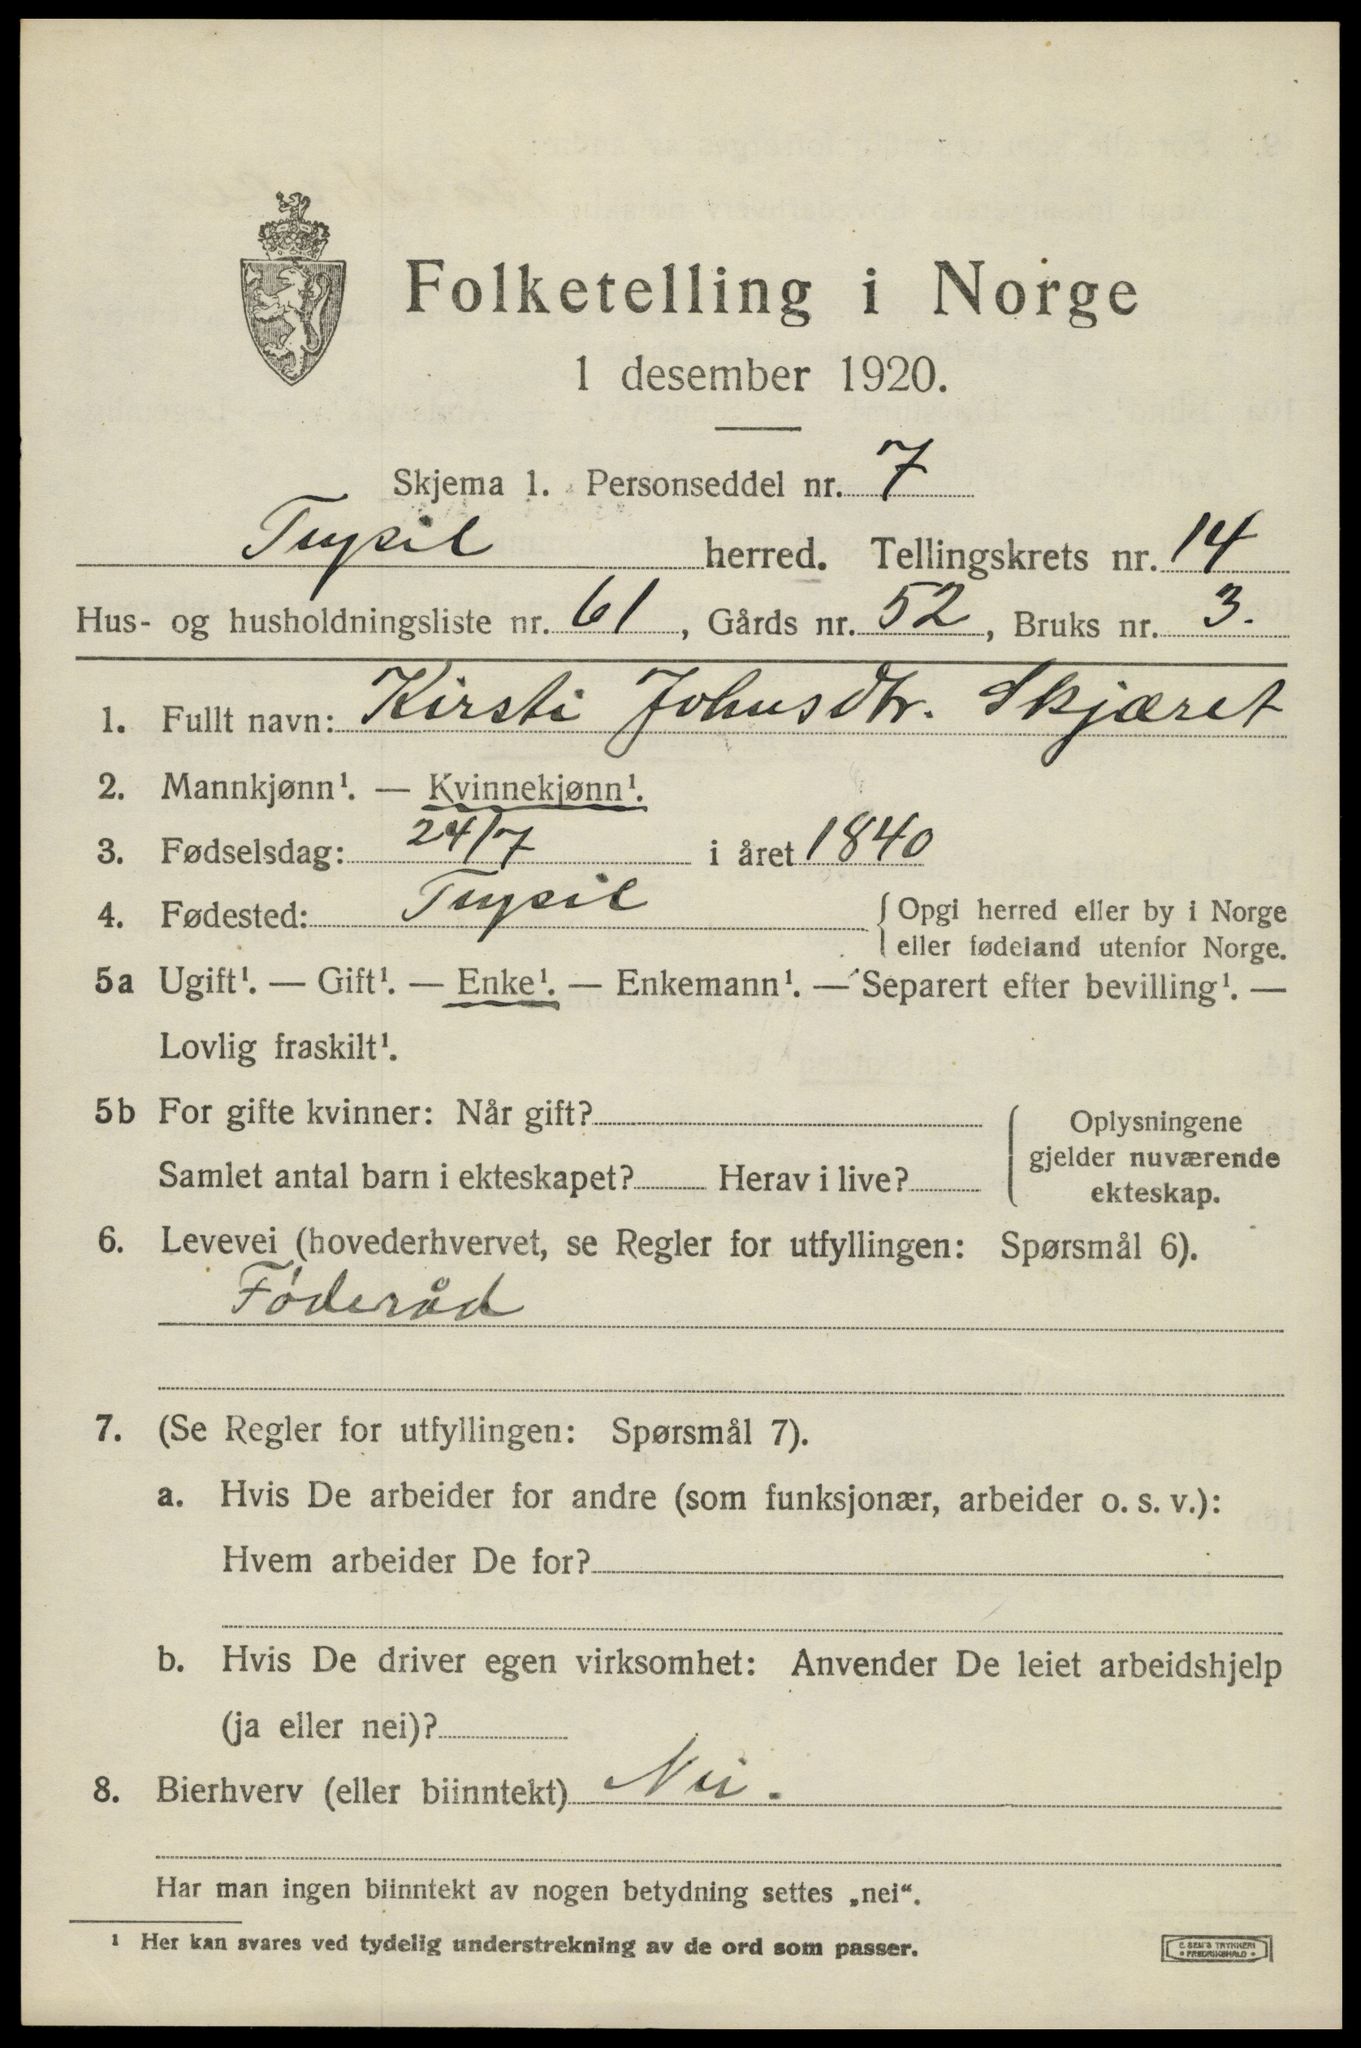 Folketelling i Norge
1 desember 1920.
Skjema 1. Personseddel nr. 7
Trysil herred. Tellingskrets nr. 14
Hus- og husholdningsliste nr. 61, Gårds nr. 52, Bruks nr. 3.
1. Fullt navn: Kirsti Johnsdtr. Skjæret
2. Mannkjønn¹. — Kvinnekjønn¹.
3. Fødselsdag: 24/7 i året 1840
4. Fødested: Trysil { Opgi herred eller by i Norge
eller fødeland utenfor Norge.
5a Ugift¹. — Gift¹. — Enke¹. — Enkemann¹. — Separert efter bevilling¹. —
Lovlig fraskilt¹.
5b For gifte kvinner: Når gift?
Samlet antal barn i ekteskapet? Herav i live?
Oplysningene
gjelder nuværende
ekteskap.
6. Levevei (hovederhvervet, se Regler for utfyllingen: Spørsmål 6).
Föderåd
7. (Se Regler for utfyllingen: Spørsmål 7).
a. Hvis De arbeider for andre (som funksjonær, arbeider o. s. v.):
Hvem arbeider De for?
b. Hvis De driver egen virksomhet: Anvender De leiet arbeidshjelp
(ja eller nei)?
8. Bierhverv (eller biinntekt) Nei.
Har man ingen biinntekt av nogen betydning settes „nei“.
¹ Her kan svares ved tydelig understrekning av de ord som passer.
E. SEM'S TRYKKERI
• FREDRIKSHALD •